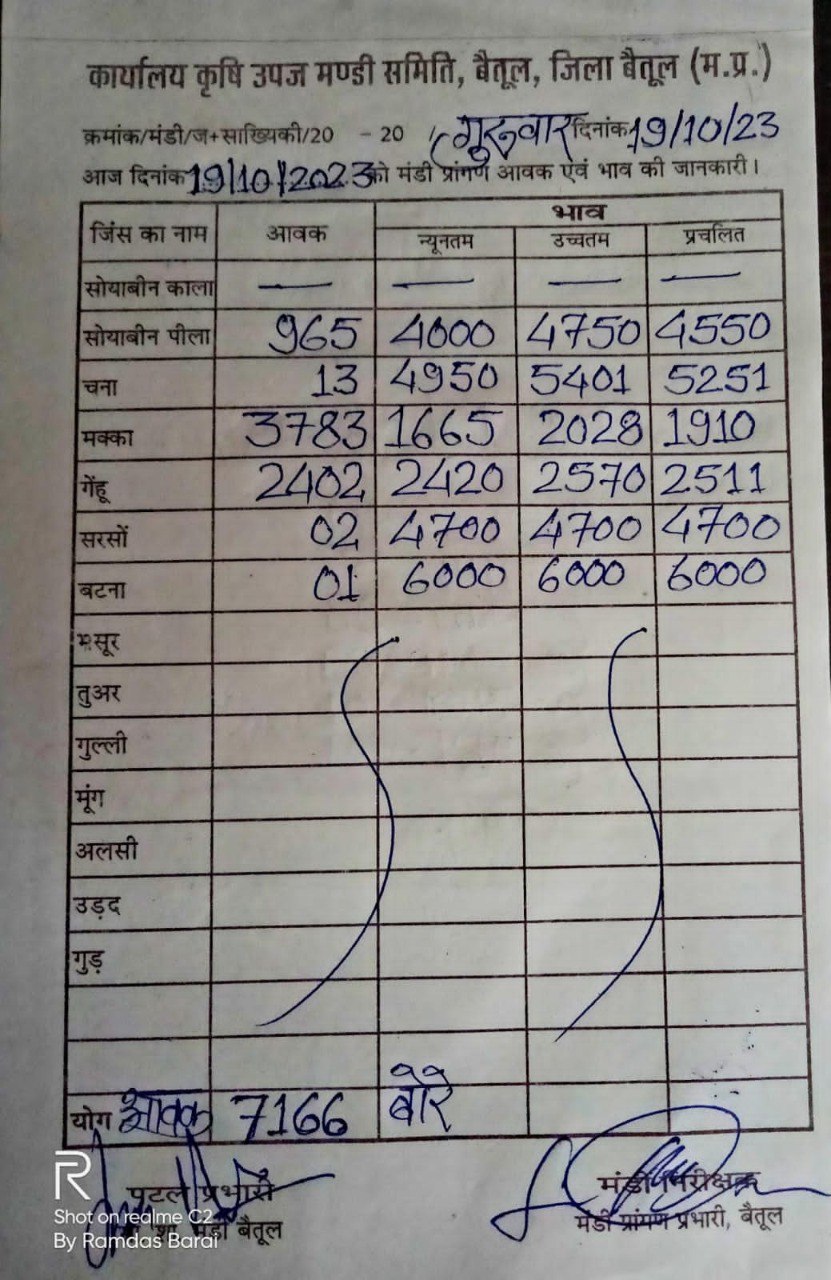 कार्यालय कृषि उपज मण्डी समिति, बैतूल, जिला बैतूल (म.प्र.)
क्रमांक/मंडी/ज+साख्यिकी/20 - 20 / गुरूवार दिनांक 19/10/23
आज दिनांक 19/10/2023 को मंडी प्रांगण आवक एवं भाव की जानकारी।
जिंस का नाम आवक भाव
न्यूनतम उच्चतम प्रचलित
सोयाबीन काला — — — —
सोयाबीन पीला 965 4000 4750 4550
चना 13 4950 5401 5251
मक्का 3783 1665 2028 1910
गेंहू 2402 2420 2570 2511
सरसों 02 4700 4700 4700
बटना 01 6000 6000 6000
मसूर
तुअर
गुल्ली
मूंग
अलसी
उड़द
गुड़
योग आवक 7166 बोरे
पटल प्रभारी मंडी निरीक्षक
मंडी बैतूल मंडी प्रांगण प्रभारी, बैतूल
R
Shot on realme C2
By Ramdas Barai